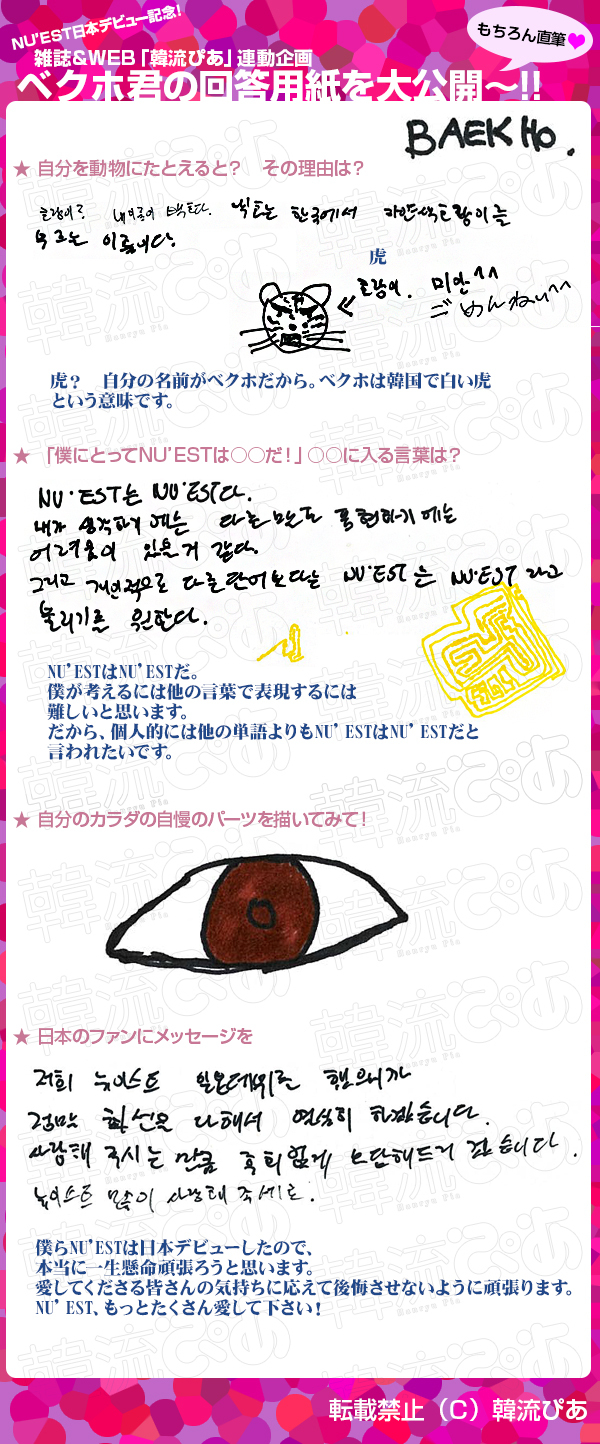 NU'EST日本デビュー記念!
雑誌&WEB「韓流ぴあ」連動企画
もちろん直筆
ベクホ君の回答用紙を大公開〜!!
BAEKHO.
★ 自分を動物にたとえると? その理由は?
호랑이? 내 이름이 백호다. 백호는 한국에서 하얀색 호랑이를
부르는 이름이다.
虎
호랑이. 미안^^
ごめんねぃ^^
虎? 自分の名前がベクホだから。ベクホは韓国で白い虎
という意味です。
★ 「僕にとってNU'ESTは○○だ!」○○に入る言葉は?
NU'EST는 NU'EST다.
내가 생각하기에는 다른 말로 표현하기에는
어려움이 있는거 같다.
그리고 개인적으로 다른단어보다는 NU'EST은 NU'EST라고
불리기를 원한다.
NU'ESTはNU'ESTだ。
僕が考えるには他の言葉で表現するには
難しいと思います。
だから、個人的には他の単語よりもNU'ESTはNU'ESTだと
言われたいです。
★ 自分のカラダの自慢のパーツを描いてみて!
★ 日本のファンにメッセージを
저희 뉴이스트 일본데뷔를 했으니까
정말 최선을 다해서 열심히 하겠습니다.
사랑해 주시는 만큼 후회없게 보답해드리겠습니다.
뉴이스트 많이 사랑해 주세요.
僕らNU'ESTは日本デビューしたので、
本当に一生懸命頑張ろうと思います。
愛してくださる皆さんの気持ちに応えて後悔させないように頑張ります。
NU'EST、もっとたくさん愛して下さい!
転載禁止(C)韓流ぴあ